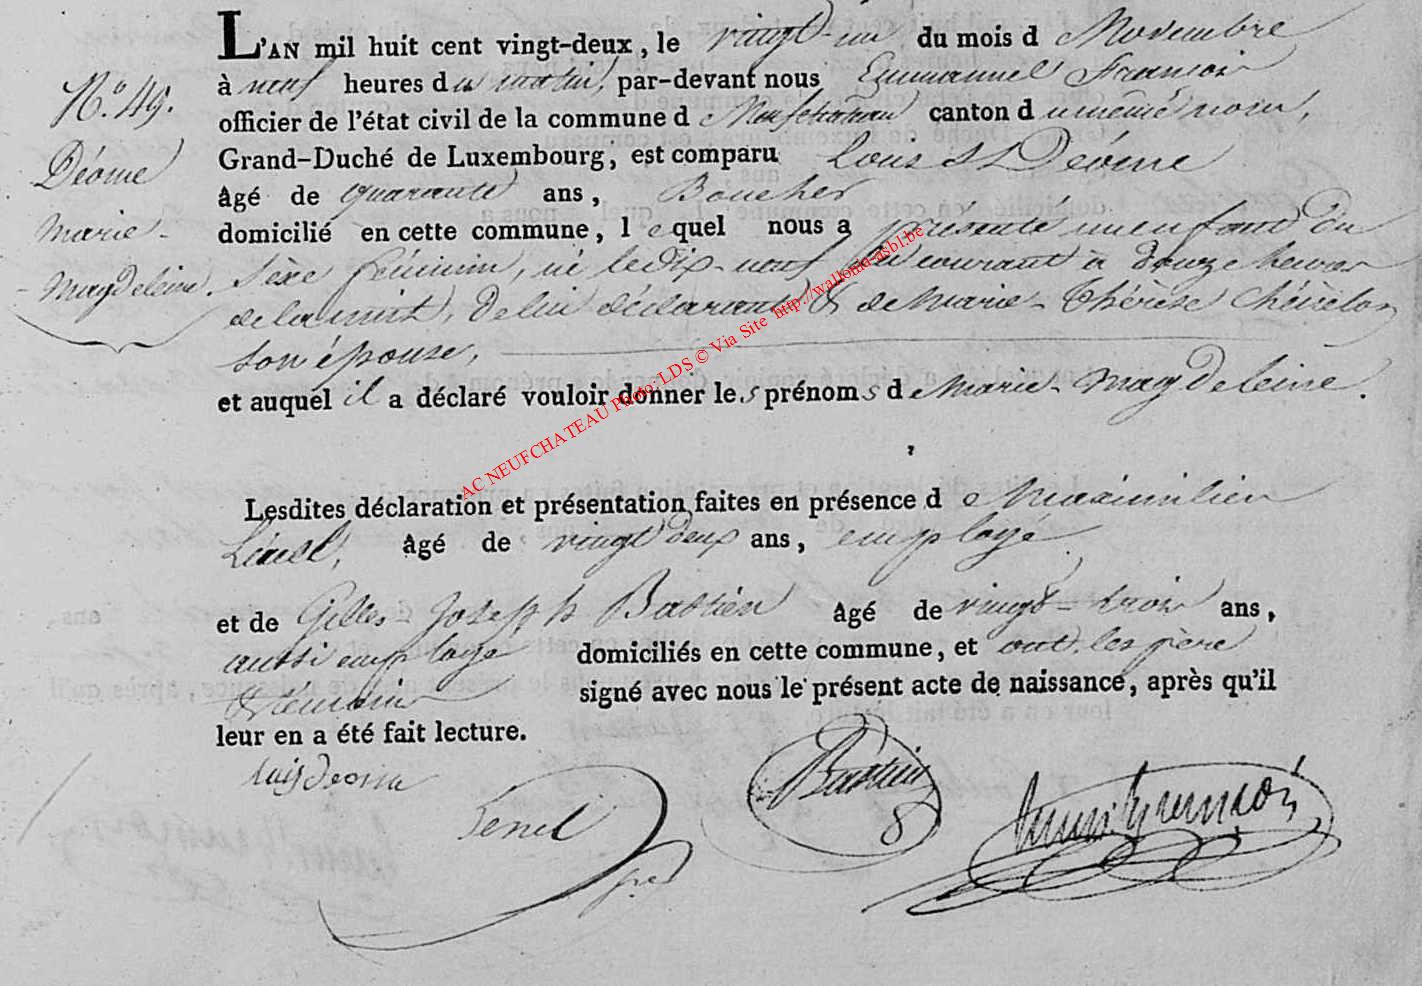 L'AN mil huit cent vingt-deux, le vingt-un du mois d Novembre
à neuf heures du matin, par-devant nous Emmanuel François
officier de l'état civil de la commune d Neufchateau canton d u même nom,
Grand-Duché de Luxembourg, est comparu Louis Déome
âgé de quarante ans, Boucher
domicilié en cette commune, lequel nous a présenté un enfant du
sexe féminin, né le dix-neuf du courant à douze heures
de la nuit, de lui déclarant & de Marie-Thérèse
son épouse,
et auquel il a déclaré vouloir donner les prénoms d Marie-Magdeleine.
Lesdites déclaration et présentation faites en présence d Maximilien
âgé de vingt deux ans, employé
et de Gilles-Joseph Bastien âgé de vingt-trois ans,
aussi employé domiciliés en cette commune, et ont les père
& témoins signé avec nous le présent acte de naissance, après qu'il
leur en a été fait lecture.
N.º 49.
Déome
Marie-
Magdeleine.
Bastien
AC NEUFCHATEAU Photo: LDS © Via Site http://wallonia-asbl.be